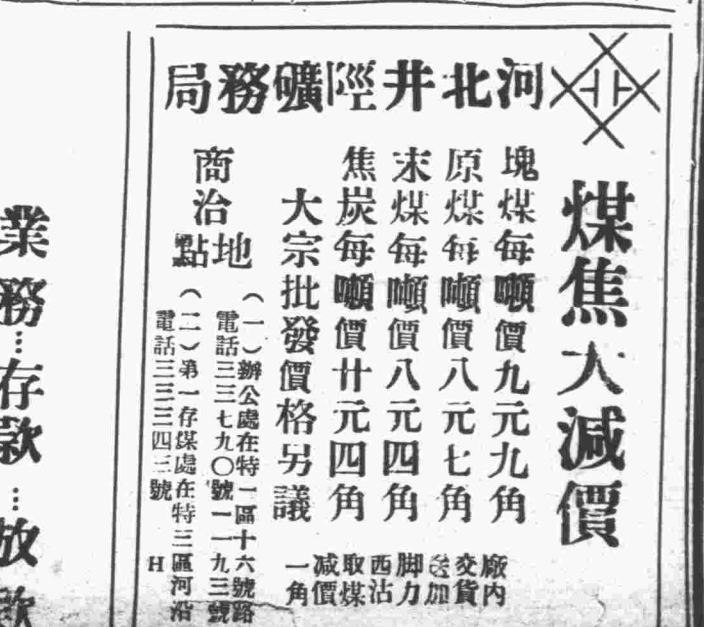 河北井陘礦務局
煤焦大減價
塊煤每噸價九元九角
原煤每噸價八元七角
末煤每噸價八元四角
焦炭每噸價廿元四角
大宗批發價格另議
廠內
交貨
送加
脚力
西沽
取煤
減價
一角
商治地點
（一）辦公處在特一區十六號路
電話三三七九〇號一一九三號
（二）第一存煤處在特三區河沿
電話三三三四三號 H
業務…存款…放款